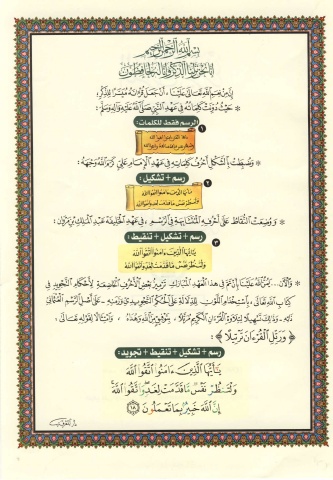 بسم الله الرحمن الرحيم
إنا نحن نزلنا الذكر وإنا له لحافظون
إن من نعم الله تعالى علينا، أن جعل قرآنه ميسرا للذكر:
* حيث دونت كلماته في عهد النبي صلى الله عليه وآله وسلم:
الرسم فقط للكلمات:
١
* وضبطت بالشكل أحرف كلماته في عهد الإمام علي كرم الله وجهه:
رسم + تشكيل:
٢
* ووضعت النقاط على أحرفه المتشابهة في الرسم، في عهد الخليفة عبد الملك بن مروان:
رسم + تشكيل + تنقيط:
٣
يَٰأَيُّهَا الَّذِينَ ءَامَنُوا اتَّقُوا اللَّهَ
وَلْتَنظُرْ نَفْسٌ مَّا قَدَّمَتْ لِغَدٍ وَاتَّقُوا اللَّهَ
* والآن... يمن الله علينا بأن تم في هذا العهد المبارك ترميز بعض الأحرف الخاضعة لأحكام التجويد في
كتاب الله تعالى، باستخدام اللون للدلالة على الحكم التجويدي وزمنه - على أصل الرسم العثماني
ذاته - وذلك تسهيلا لتلاوة القرآن الكريم مرتلا، بتوفيق من الله وهداه، وامتثالا لقوله تعالى:
﴿ وَرَتِّلِ الْقُرْءَانَ تَرْتِيلًا ﴾:
رسم + تشكيل + تنقيط + تجويد:
يَٰأَيُّهَا الَّذِينَ ءَامَنُوا اتَّقُوا اللَّهَ
وَلْتَنظُرْ نَفْسٌ مَّا قَدَّمَتْ لِغَدٍ وَاتَّقُوا اللَّهَ
إِنَّ اللَّهَ خَبِيرٌ بِمَا تَعْمَلُونَ ١٨
دار المعرفة